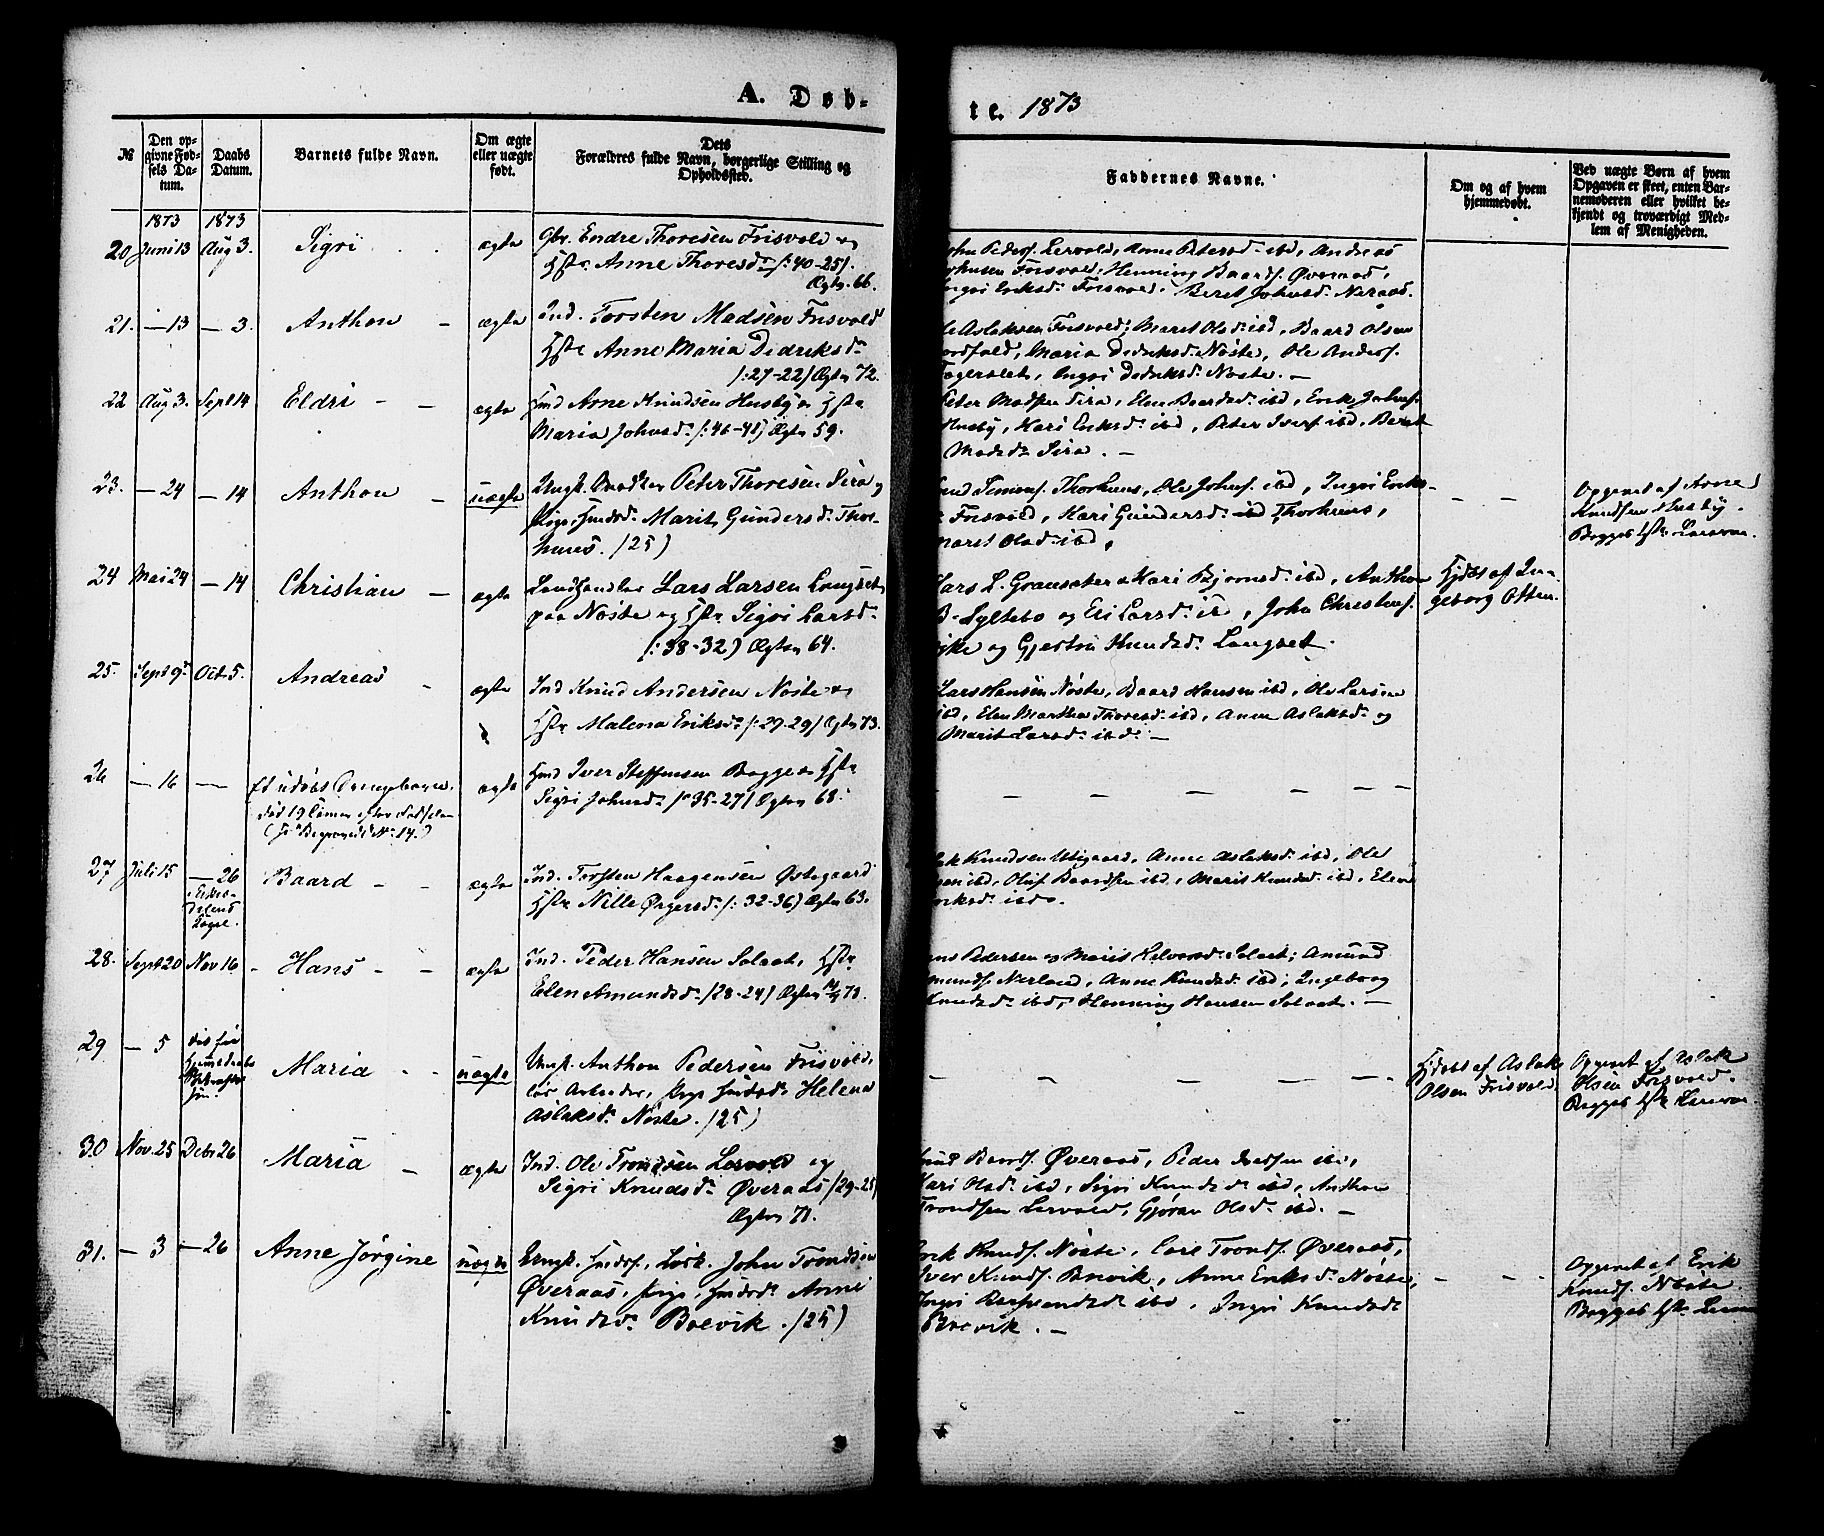 A. Døb-
te. 1873
№
Den op-
givne Fød-
sels Da-
tum.
Daabs
Datum.
Barnets fulde Navn.
Om ægte
eller uægte
født.
Dets
Forældres fulde Navn, borgerlige Stilling og
Opholdssted.
Faddernes Navne.
Om og af hvem
hjemmedøbt.
Ved uægte Børn af hvem
Opgaven er skeet, enten Bar-
nemoderen eller hvilket be-
kjendt og troværdigt Med-
lem af Menigheden.
1873 1873
20 Juni 13 Aug 3. Sigri ægte Gbr. Endre Thoresen Frisvold og
Hstr Anne Thoresdr /:40-25/.
Ægtev. 66.
Pedersf. Lervold, Anne Petersdr ibd, Andreas
Frisvold, Henning Baardsf. Øveraas,
Ingri Eriksdr Frisvold. Beret Johnsdr Neraas.
21. - 13 - 3. Anthon - ægte Ind. Torsten Madsen Frisvold
Hstr Anne Maria Didriksdr
/:27-22/ Ægtev 72.
Aslaksen Frisvold, Maret Olsdr ibd, Baard Olsen
Maria Didriksdr Nøste, Ole Andersf.
Ingri Didriksdr Nøste. -
22 Aug 3. Sept 14 Eldri - - ægte Arne Knudsen Husby og Hstr
Maria Johnsdr /:46-41/ Ægtev 59.
Peter Madsen Sira, Elen Baardsdr ibd, Erik Johnsf.
Husby, Kari Eriksdr ibd, Peter Iversf ibd, Beret
Madsdr Sira. -
23. - 24 - 14 Anthon - uægte Ungk. Peter Thoresen Sira og
Pige Marit Gundersdr Thor-
huus. /25/
Simonsf. Thorhuus, Ole Johnsf. ibd, Ingri Eriks-
Frisvold, Kari Gundersdr ibd Thorhuus,
Maret Olsdr ibd,
- -
Opgivet af Arne
Knudsen Husby.
Begges 1ste Leierm.
24 Mai 24 - 14 Christian - ægte Landhandler Lars Larsen Langset
paa Nøste og Hstr Sigri Larsdr
/:38-32/ Ægtev 64.
Lars L. Gransæter og Kari Bjørnsdr ibd, Anthon
B. Syltebø og Eli Larsdr ib, John Christensf.
og Gjertru Knudsdr Langset.
Hjdøbt af In-
geborg Otten.
25. Sept 9 Oct. 5. Andreas - ægte Ind Knud Andersen Nøste og
Hstr Malena Eriksdr /:29-29/ Ægtev 73.
Lars Hansen Nøste, Baard Hansen ibd, Ole Larsen
ibd, Elen Martha Thoresdr ibd, Anne Aslaksdr og
Marit Larsdr ibd. -
26 - 16 - Et udøbt Drengebarn,
død 19 Timer efter Fødselen
(Begravede № 14.)
ægte Iver Steffensen Bogge og Hstr
Sigri Johnsdr /:35-27/ Ægtev 68.
- - - - -
27 Juli 15 - 26
Eikis-
dalens
Capel.
Baard - - ægte Ind. Torsten Haagensen Østegaard
Hstr Nille Ørgersdr /:32-36/ Ægtev 63.
Knudsen Utigaard, Anne Aslaksdr ibd, Ole
ibd, Oluf Baardsen ibd, Marit Knudsdr ibd, Elen
ibd.
28. Sept 20 Nov 16 - Hans - - ægte Ind. Peder Hansen Solaat, Hstr
Elen Amundsdr /28-24/ Ægtev 73.
Pedersen og Marit Solaat; Amund
Nerland, Anne Knudsdr ibd, Ingeborg
Knudsdr ibd, Henning Hansen Solaat. -
29 - 5
død før
Maria - - uægte Ungk. Anthon Pedersen Frisvold,
løs Arbeider, Pige Helena
Aslaksdr Nøste. /25/
- - - - -
Hjdøbt af Aslak
Olsen Frisvold.
Opgivet af Aslak
Olsen Frisvold.
Begges 1ste Leierm.
30 Nov. 25 Debr 26 Maria - ægte Ind. Ole Trondsen Lervold og
Sigri Knudsdr Øveraas /29-25/
Ægtev 71.
Knud Baardsf. Øveraas, Peder Iversen ibd,
Kari Olsdr ibd, Sigri Knudsdr ibd, Anthon
Trondsen Lervold, Gjøran Olsdr ibd. -
31. - 3 - 26 Anne Jørgine uægte Ungk. John Trondsen
Øveraas, Pige, Anne
Knudsdr Brevik. /25/
Erik Knudsf. Nøste, Trondsf. Øveraas,
Iver Knudsf. Brevik, Anne Eriksdr Nøste,
Ingri ibd, Ingri Knudsdr
Brevik. -
- - -
Opgivet af Erik
Knudsf. Nøste
Begges 1ste Leierm